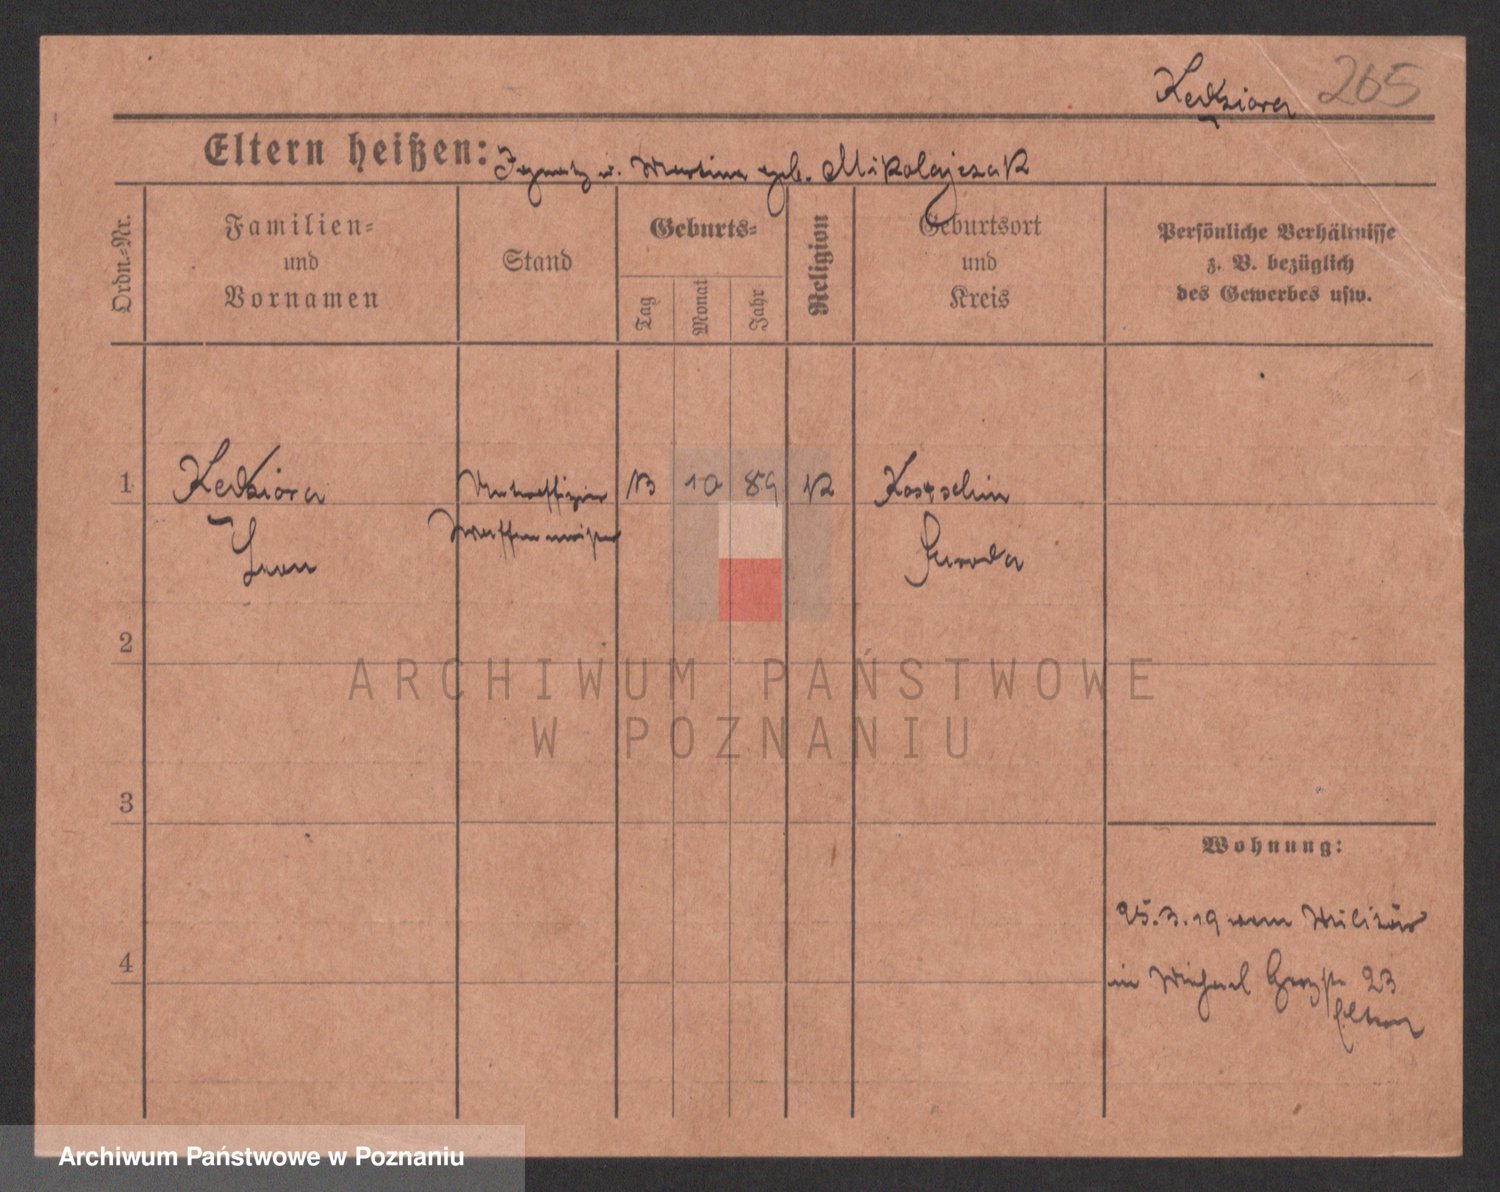 Kedziora 265
Eltern heißen: Ignatz u. Martina geb. Mikolajczak
Ordn.-Nr.
Familien-
und
Vornamen
Stand
Geburts-
Tag
Monat
Jahr
Religion
Geburtsort
und
Kreis
Persönliche Verhältnisse
z. B. bezüglich
des Gewerbes usw.
1
Kedziora
Leon
Unteroffizier
Waffenmeister
13
10
89
K
Kostschin
Schroda
2
3
4
Wohnung:
25.3.19 vom Militär
in 23
Eltern
ARCHIWUM PAŃSTWOWE
W POZNANIU
Archiwum Państwowe w Poznaniu